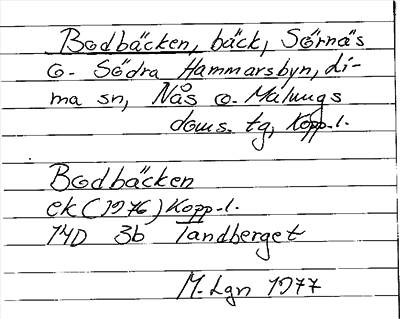 Bodbäcken, bäck, Sörnäs
o. Södra Hammarsbyn, Li-
ma sn, Nås o. Malungs
doms. tg, Kopp.l.
Bodbäcken
ek (1976) Kopp.l.
14D 3b Tandberget
M. Lgn 1977